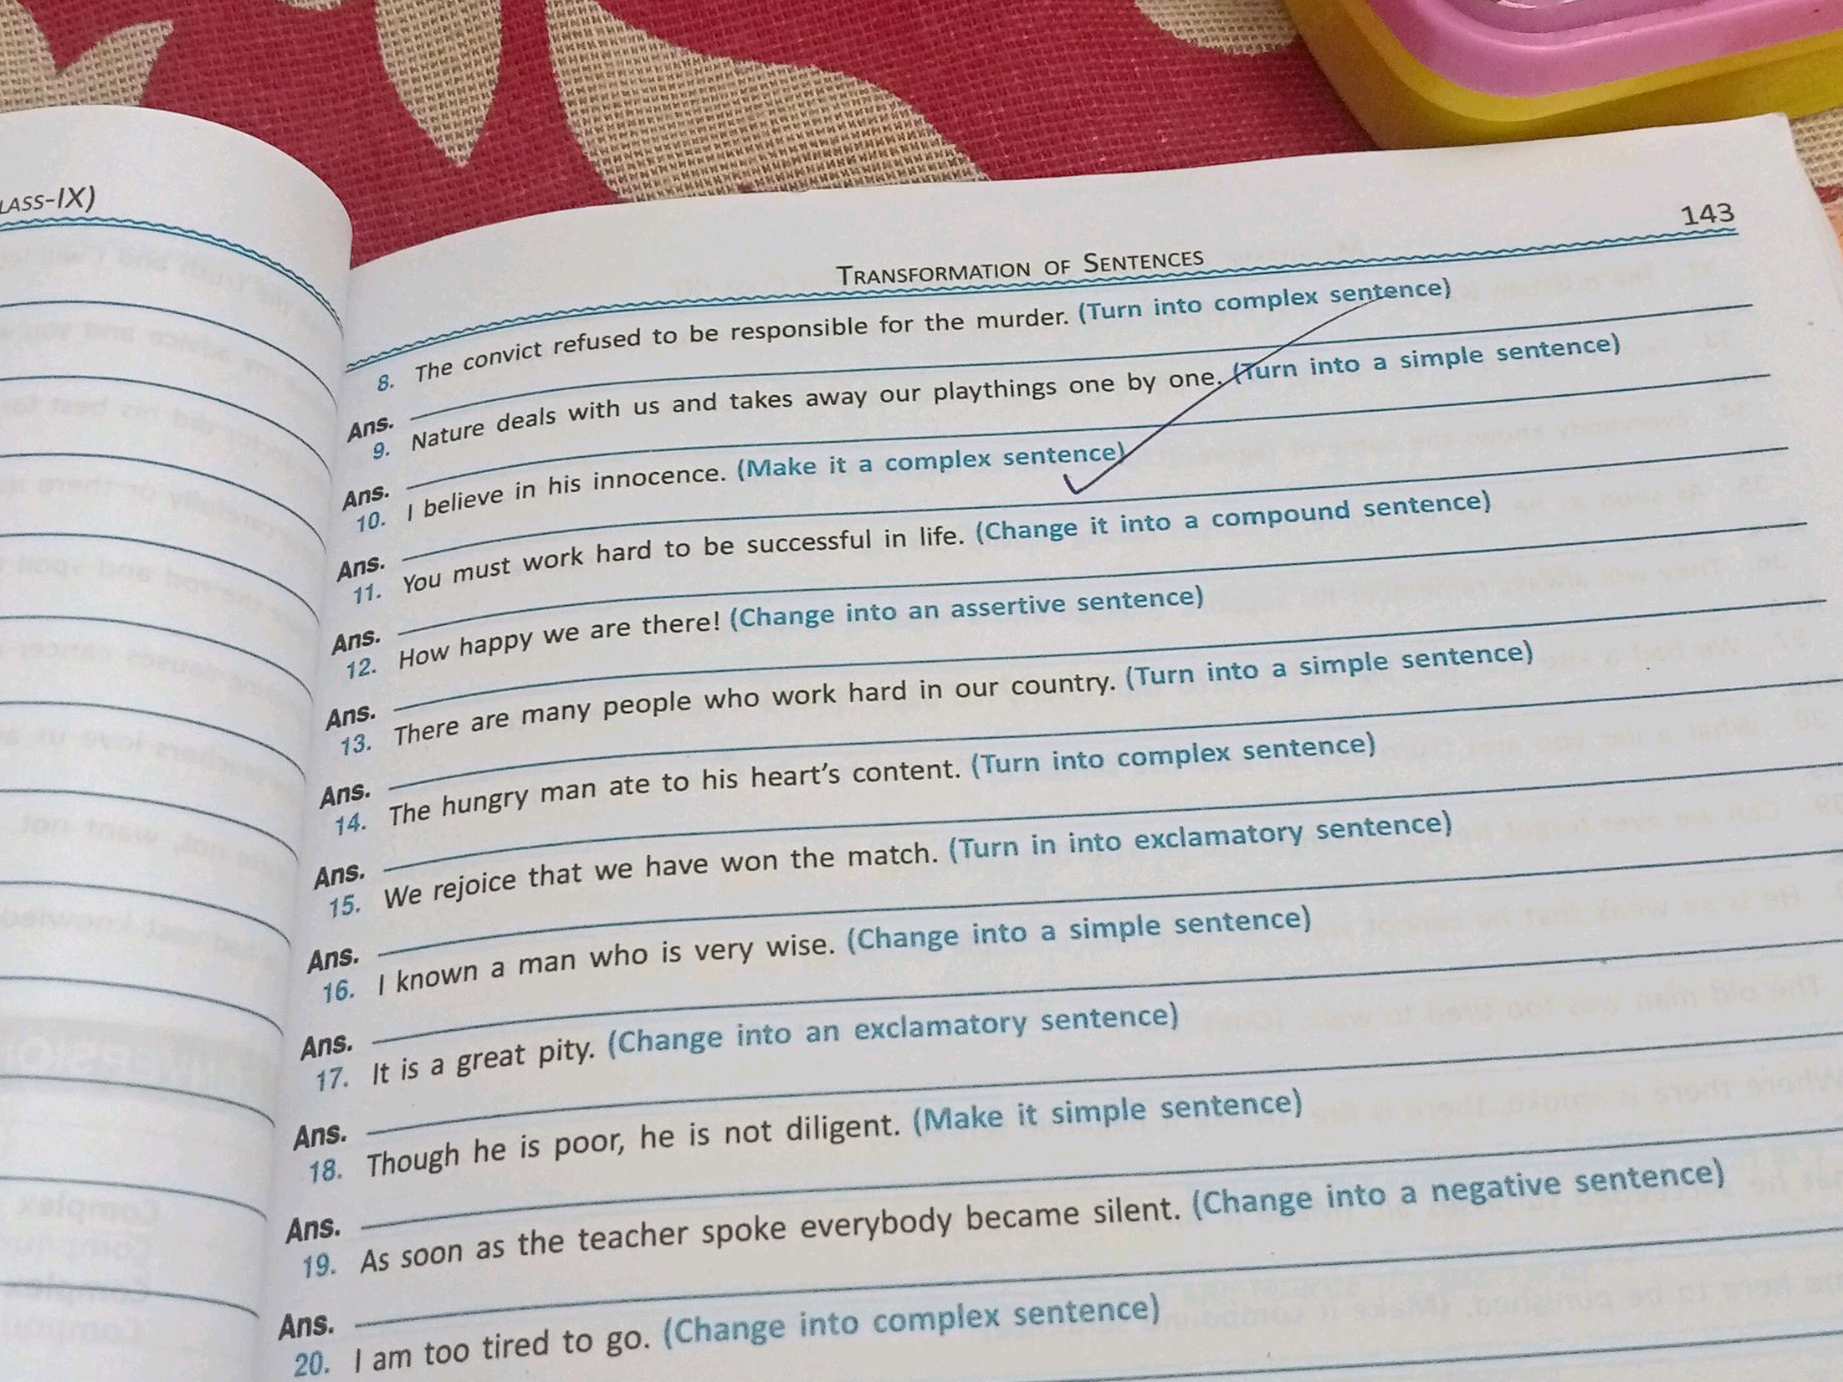 LASS-IX)
143
TRANSFORMATION OF SENTENCES
8. The convict refused to be responsible for the murder. (Turn into complex sentence)
Ans.
9. Nature deals with us and takes away our playthings one by one. (Turn into a simple sentence)
Ans.
10. I believe in his innocence. (Make it a complex sentence)
Ans.
11. You must work hard to be successful in life. (Change it into a compound sentence)
Ans.
12. How happy we are there! (Change into an assertive sentence)
Ans.
13. There are many people who work hard in our country. (Turn into a simple sentence)
Ans.
14. The hungry man ate to his heart's content. (Turn into complex sentence)
Ans.
15. We rejoice that we have won the match. (Turn in into exclamatory sentence)
Ans.
16. I known a man who is very wise. (Change into a simple sentence)
Ans.
17. It is a great pity. (Change into an exclamatory sentence)
Ans.
18. Though he is poor, he is not diligent. (Make it simple sentence)
Ans.
19. As soon as the teacher spoke everybody became silent. (Change into a negative sentence)
Ans.
20. I am too tired to go. (Change into complex sentence)